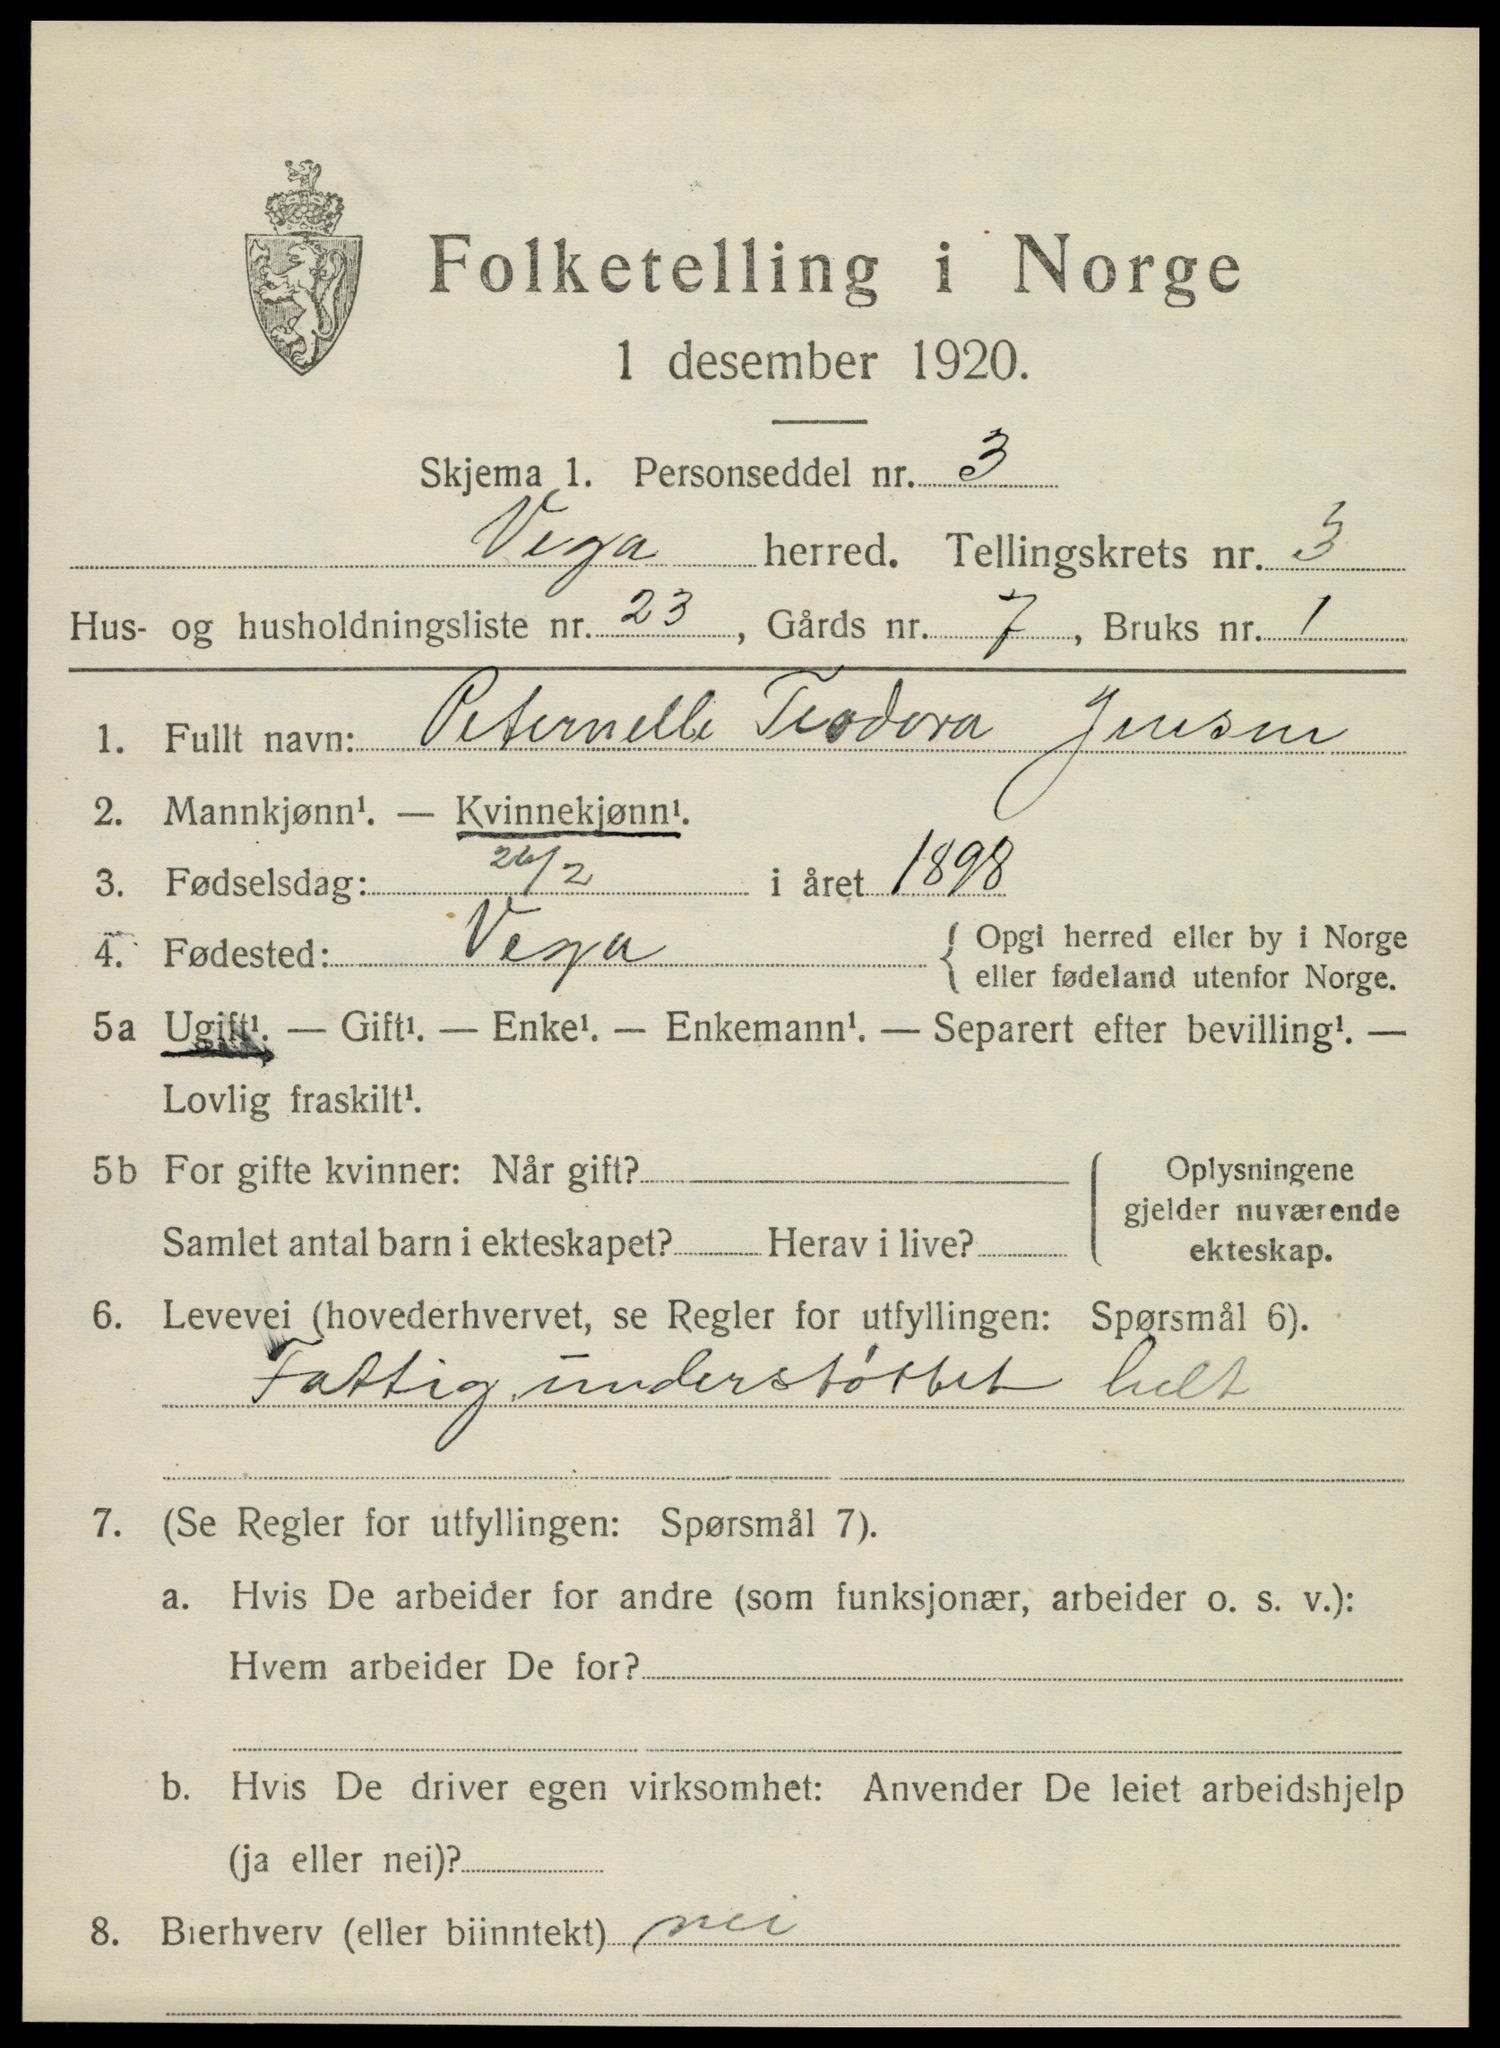 Folketelling i Norge
1 desember 1920.
Skjema 1. Personseddel nr. 3
Vega herred. Tellingskrets nr. 3
Hus- og husholdningsliste nr. 23, Gårds nr. 7, Bruks nr. 1
1. Fullt navn: Peternelle Teodora Jensen
2. Mannkjønn¹. — Kvinnekjønn¹.
3. Fødselsdag: 26/2 i året 1898
4. Fødested: Vega { Opgi herred eller by i Norge
eller fødeland utenfor Norge.
5a Ugift¹. — Gift¹. — Enke¹. — Enkemann¹. — Separert efter bevilling¹. —
Lovlig fraskilt¹.
5b For gifte kvinner: Når gift?
Samlet antal barn i ekteskapet? Herav i live?
Oplysningene
gjelder nuværende
ekteskap.
6. Levevei (hovederhvervet, se Regler for utfyllingen: Spørsmål 6).
Fattig understöttet helt
7. (Se Regler for utfyllingen: Spørsmål 7).
a. Hvis De arbeider for andre (som funksjonær, arbeider o. s. v.):
Hvem arbeider De for?
b. Hvis De driver egen virksomhet: Anvender De leiet arbeidshjelp
(ja eller nei)?
8. Bierhverv (eller biinntekt) nei